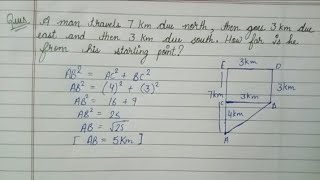 Ques. A man travels 7 km due north, then goes 3 km due
east and then 3 km due south. How far is he
from his starting point?
AB² = AC² + BC²
AB² = (4)² + (3)²
AB² = 16 + 9
AB² = 25
AB = √25
[ AB = 5Km ]
3km
E
D
7km
3km
3km
C
B
4km
A